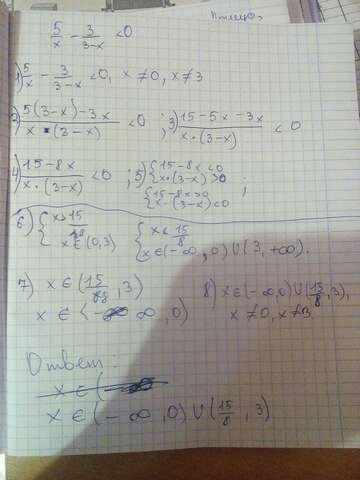 5/x - 3/(3-x) < 0
1) 5/x - 3/(3-x) < 0, x ≠ 0, x ≠ 3
2) (5(3-x) - 3x)/(x · (3-x)) < 0 ; 3) (15 - 5x - 3x)/(x · (3-x)) < 0
4) (15 - 8x)/(x · (3-x)) < 0 ; 5) { 15 - 8x < 0 { x · (3-x) > 0 ;
{ 15 - 8x > 0 { x · (3-x) < 0
6) { x > 15/8 { x ∈ (0,3) { x < 15/8 { x ∈ (-∞, 0) ∪ (3, +∞).
7) x ∈ (15/8, 3) 8) x ∈ (-∞, 0) ∪ (15/8, 3),
x ∈ (-∞, 0) x ≠ 0, x ≠ 3
Ответ:
x ∈ (-∞, 0) ∪ (15/8, 3)